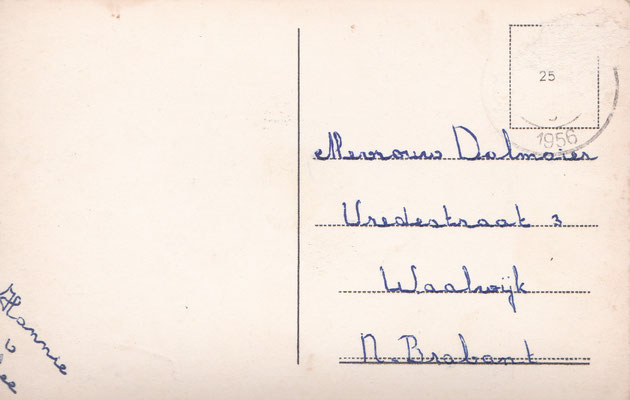 25
1956
Mevrouw Dalmaier
Vredestraat 3
Waalwijk
N-Brabant
Hannie